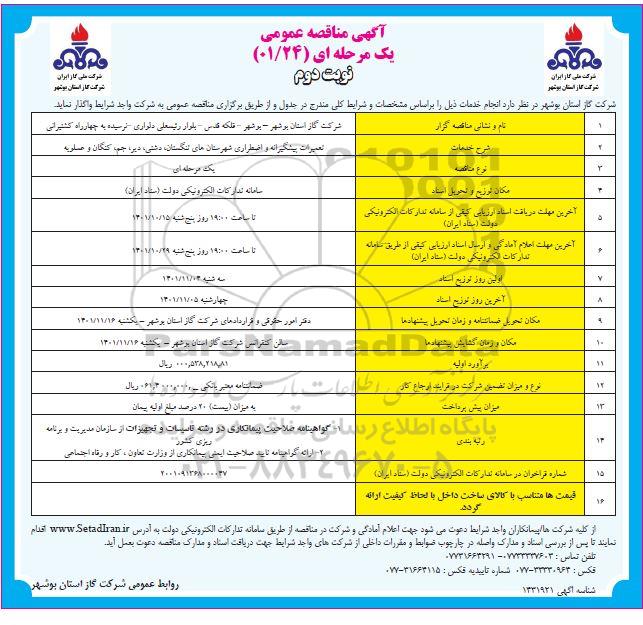 آگهی مناقصه عمومی
یک مرحله ای (۰۱/۲۴)
نوبت دوم
شرکت ملی گاز ایران
شرکت گاز استان بوشهر
شرکت ملی گاز ایران
شرکت گاز استان بوشهر
شرکت گاز استان بوشهر در نظر دارد انجام خدمات ذیل را براساس مشخصات و شرایط کلی مندرج در جدول و از طریق برگزاری مناقصه عمومی به شرکت واجد شرایط واگذار نماید.
۱ نام و نشانی مناقصه گزار شرکت گاز استان بوشهر – بوشهر - فلکه قدس - بلوار رئیسعلی دلواری -نرسیده به چهارراه کشتیرانی
۲ شرح خدمات تعمیرات پیشگیرانه و اضطراری شهرستان های تنگستان، دشتی، دیر، جم، کنگان و عسلویه
۳ نوع مناقصه یک مرحله ای
۴ مکان توزیع و تحویل اسناد سامانه تدارکات الکترونیکی دولت (ستاد ایران)
۵ آخرین مهلت دریافت اسناد ارزیابی کیفی از سامانه تدارکات الکترونیکی دولت (ستاد ایران) تا ساعت ۱۹:۰۰ روز پنج‌شنبه ۱۴۰۱/۱۰/۱۵
۶ آخرین مهلت اعلام آمادگی و ارسال اسناد ارزیابی کیفی از طریق سامانه تدارکات الکترونیکی دولت (ستاد ایران) تا ساعت ۱۹:۰۰ روز پنج‌شنبه ۱۴۰۱/۱۰/۲۹
۷ اولین روز توزیع اسناد سه شنبه ۱۴۰۱/۱۱/۰۴
۸ آخرین روز توزیع اسناد چهارشنبه ۱۴۰۱/۱۱/۰۵
۹ مکان تحویل ضمانتنامه و زمان تحویل پیشنهادها دفتر امور حقوقی و قراردادهای شرکت گاز استان بوشهر – یکشنبه ۱۴۰۱/۱۱/۱۶
۱۰ مکان و زمان گشایش پیشنهادها سالن کنفرانس شرکت گاز استان بوشهر – یکشنبه ۱۴۰۱/۱۱/۱۶
۱۱ برآورد اولیه ریال
۱۲ نوع و میزان تضمین شرکت در فرایند ارجاع کار ضمانتنامه معتبر بانکی – ریال
۱۳ میزان پیش پرداخت به میزان (بیست) ۲۰ درصد مبلغ اولیه پیمان
۱۴ رتبه بندی ۱- گواهینامه صلاحیت پیمانکاری در رشته تاسیسات و تجهیزات از سازمان مدیریت و برنامه ریزی کشور
۲- ارائه گواهینامه تایید صلاحیت ایمنی پیمانکاری از وزارت تعاون ، کار و رفاه اجتماعی
۱۵ شماره فراخوان در سامانه تدارکات الکترونیکی دولت (ستاد ایران) ۲۰۰۱۰۹۱۳۶۸۰۰۰۰۳۷
۱۶ قیمت ها متناسب با کالای ساخت داخل با لحاظ کیفیت ارائه گردد.
از کلیه شرکت ها/پیمانکاران واجد شرایط دعوت می شود جهت اعلام آمادگی و شرکت در مناقصه از طریق سامانه تدارکات الکترونیکی دولت به آدرس www.SetadIran.ir اقدام
نمایند تا پس از بررسی اسناد و مدارک واصله در چارچوب ضوابط و مقررات داخلی از شرکت های واجد شرایط جهت دریافت اسناد و مدارک مناقصه دعوت بعمل آید.
تلفن تماس : ۰۷۷۳۳۳۳۷۶۰۳ - ۰۷۷۳۱۶۶۴۲۹۱
فکس : ۳۳۳۳۰۹۶۴-۰۷۷ شماره تاییدیه فکس : ۳۱۶۶۴۱۱۵-۰۷۷
شناسه آگهی ۱۴۳۱۹۲۱
روابط عمومی شرکت گاز استان بوشهر
ParsNamadData
پایگاه اطلاع رسانی مناقصه و مزایده
۰۲۱-۸۸۳۴۹۶۷۰-۵